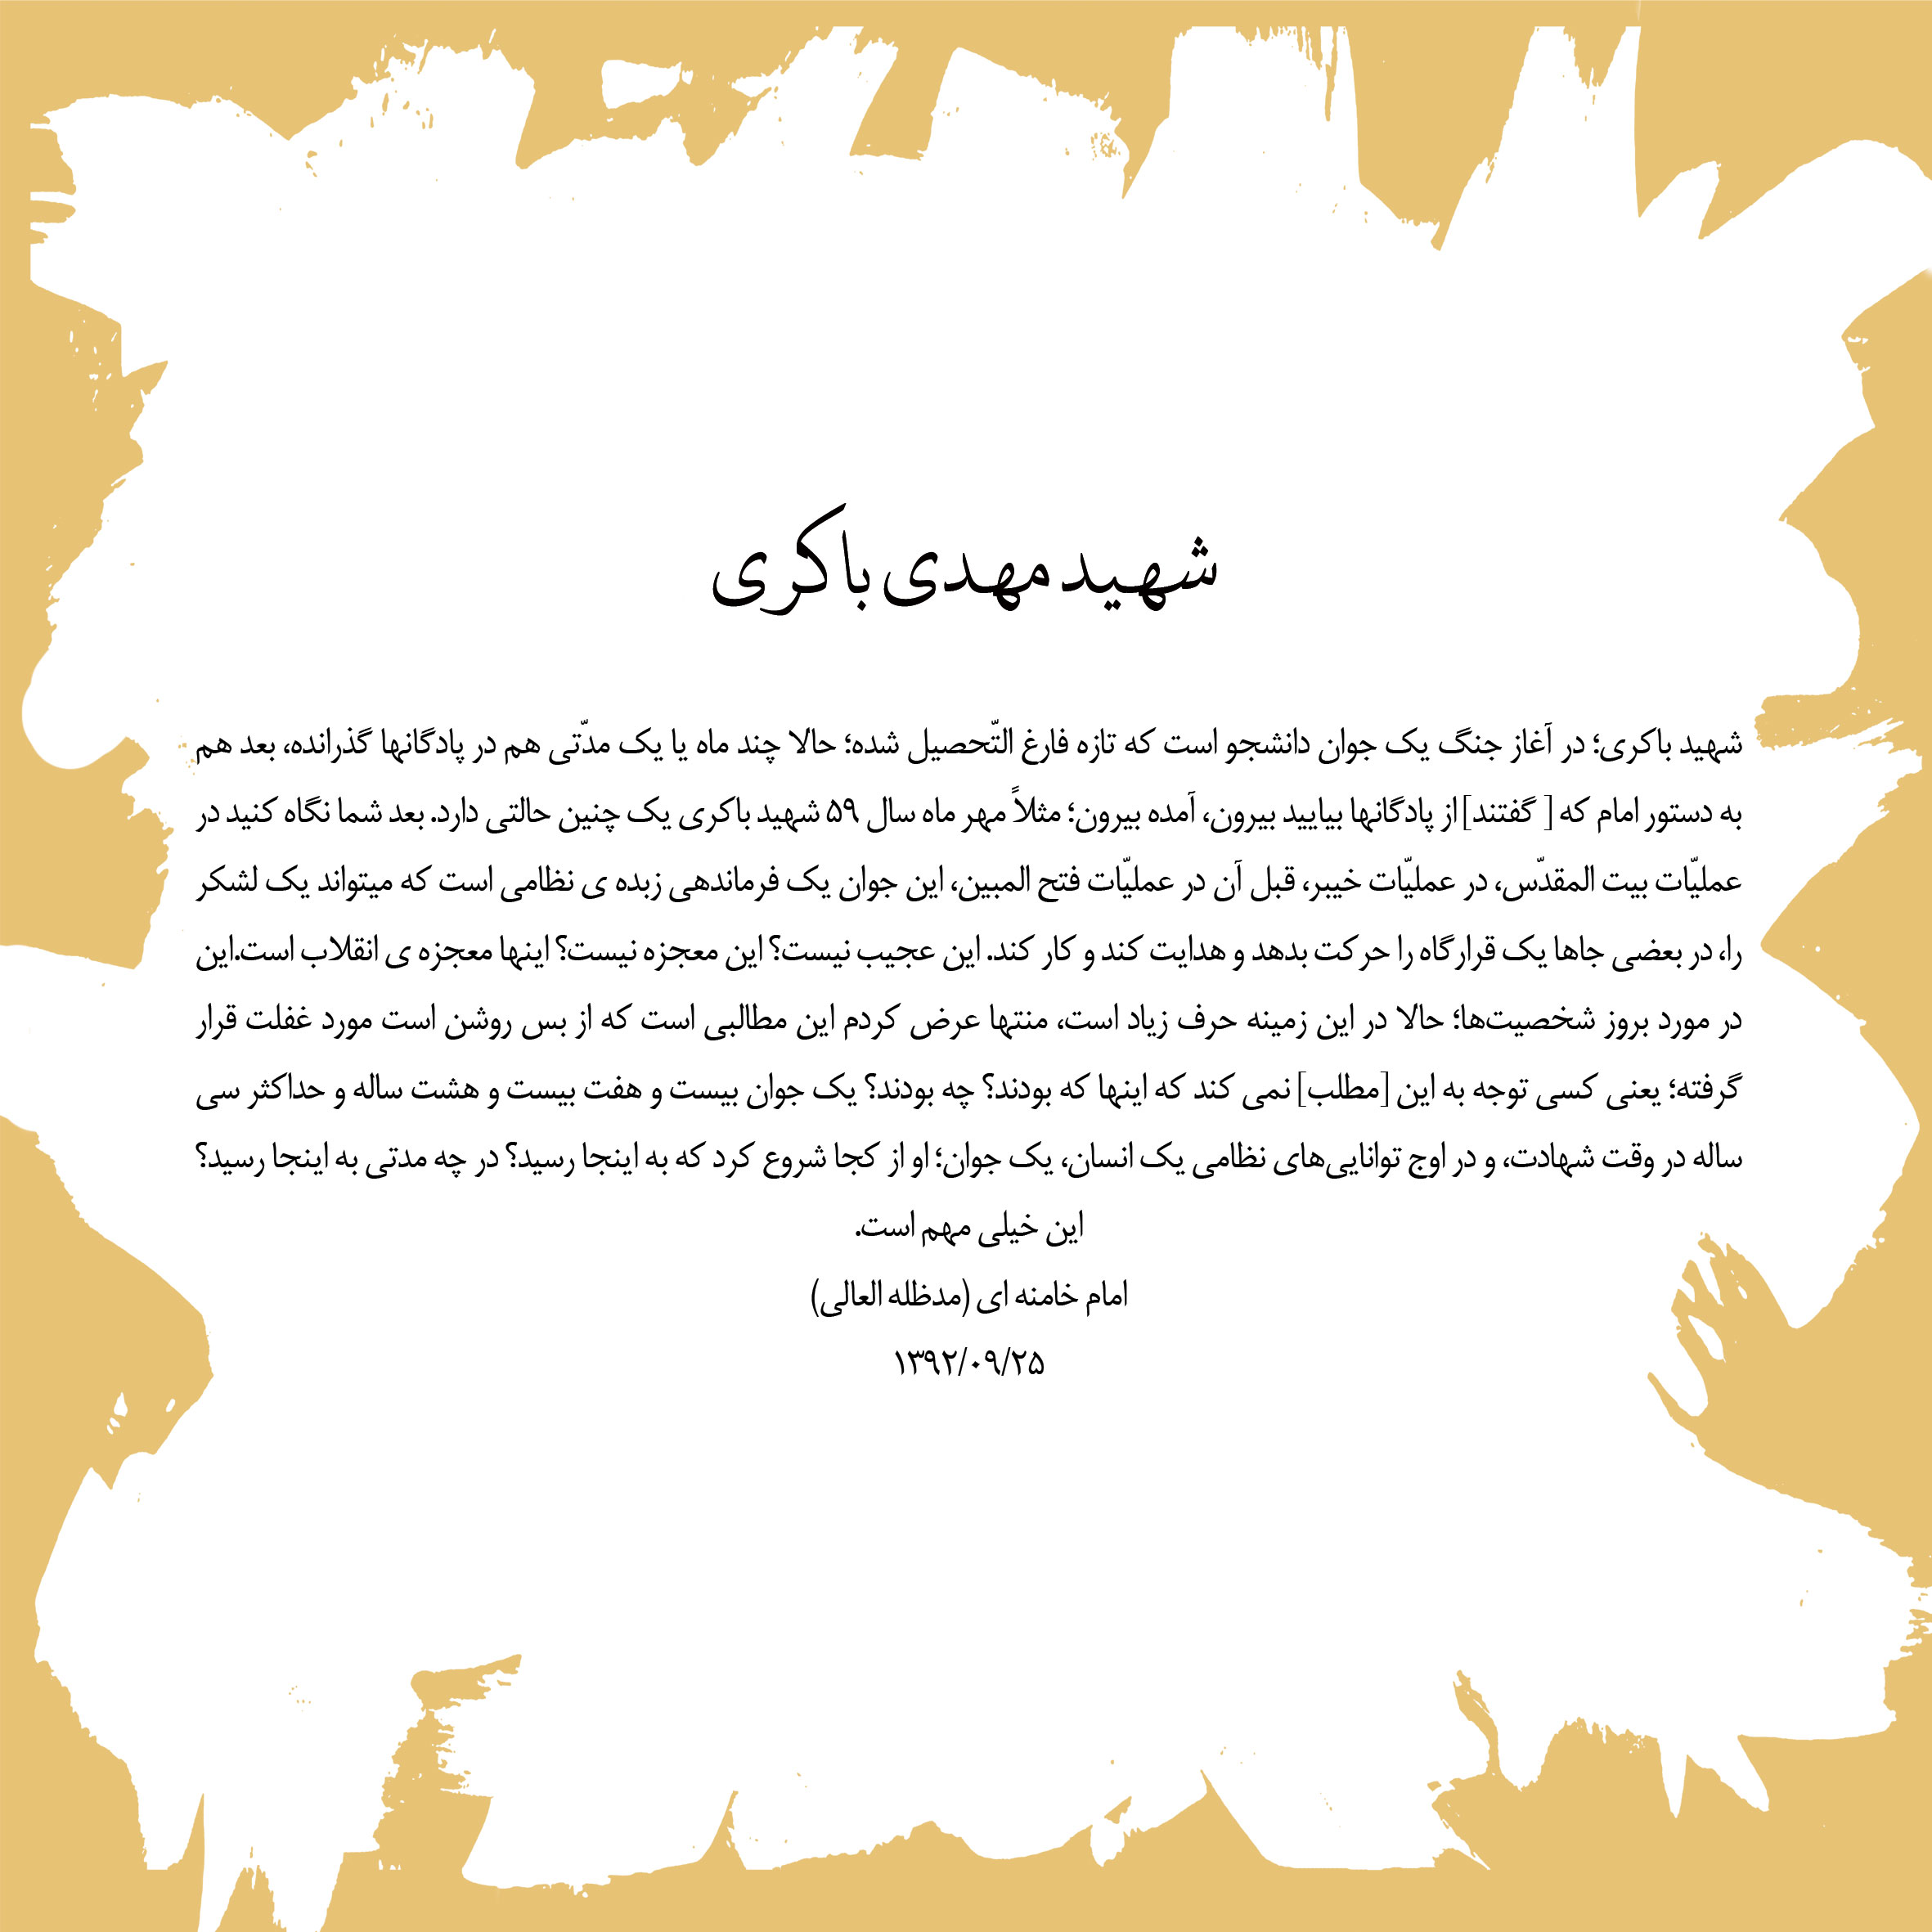 شهید مهدی باکری
شهید باکری؛ در آغاز جنگ یک جوان دانشجو است که تازه فارغ التّحصیل شده؛ حالا چند ماه یا یک مدّتی هم در پادگانها گذرانده، بعد هم
به دستور امام که [ گفتند] از پادگانها بیایید بیرون، آمده بیرون؛ مثلاً مهر ماه سال ۵۹ شهید باکری یک چنین حالتی دارد. بعد شما نگاه کنید در
عملیّات بیت المقدّس، در عملیّات خیبر، قبل آن در عملیّات فتح المبین، این جوان یک فرماندهی زبده ی نظامی است که میتواند یک لشکر
را، در بعضی جاها یک قرارگاه را حرکت بدهد و هدایت کند و کار کند. این عجیب نیست؟ این معجزه نیست؟ اینها معجزه ی انقلاب است.این
در مورد بروز شخصیت‌ها؛ حالا در این زمینه حرف زیاد است، منتها عرض کردم این مطالبی است که از بس روشن است مورد غفلت قرار
گرفته؛ یعنی کسی توجه به این [مطلب] نمی کند که اینها که بودند؟ چه بودند؟ یک جوان بیست و هفت بیست و هشت ساله و حداکثر سی
ساله در وقت شهادت، و در اوج توانایی‌های نظامی یک انسان، یک جوان؛ او از کجا شروع کرد که به اینجا رسید؟ در چه مدتی به اینجا رسید؟
این خیلی مهم است.
امام خامنه ای (مدظله العالی)
۱۳۹۲/۰۹/۲۵